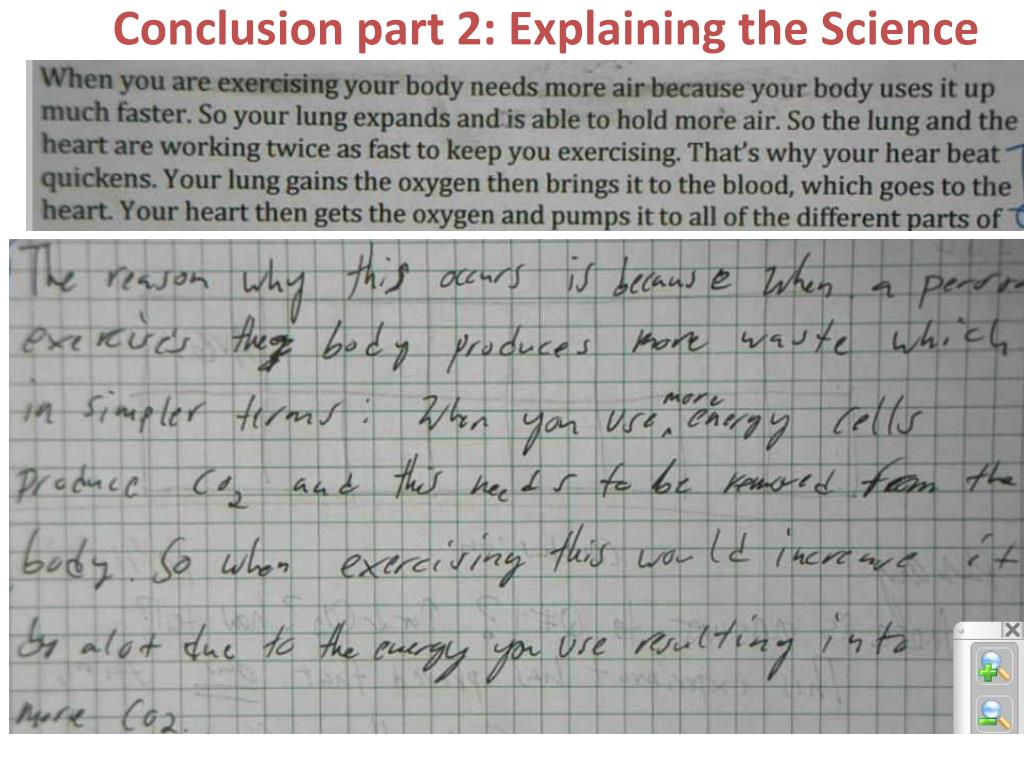 Conclusion part 2: Explaining the Science
When you are exercising your body needs more air because your body uses it up
much faster. So your lung expands and is able to hold more air. So the lung and the
heart are working twice as fast to keep you exercising. That's why your hear beat
quickens. Your lung gains the oxygen then brings it to the blood, which goes to the
heart. Your heart then gets the oxygen and pumps it to all of the different parts of
The reason why this occurs is because when a person
exercises body produces more waste which
in simpler terms: When you use more energy cells
produce CO2 and this needs to be removed from the
body. So when exercising this would increase it
by alot due to the energy you use resulting into
more CO2.